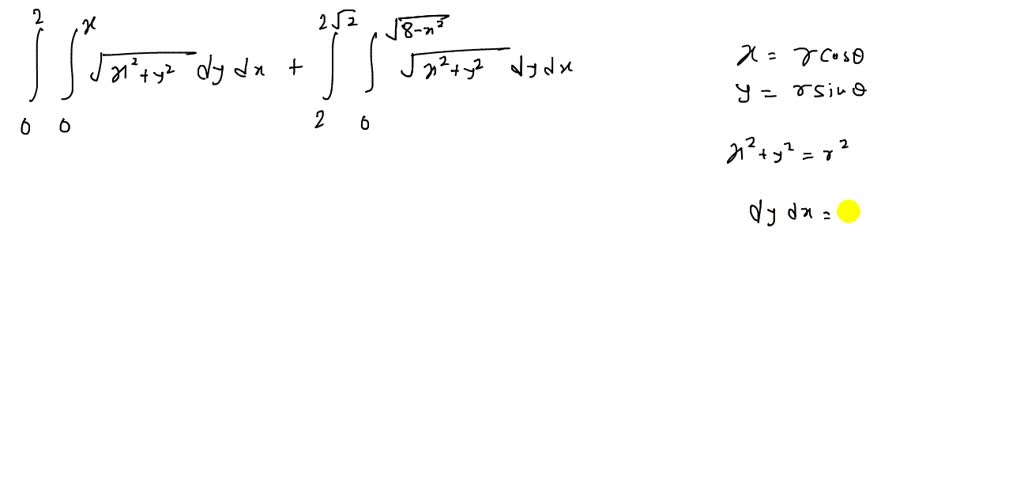 ∫₀² ∫₀ˣ √(x²+y²) dy dx + ∫₂^(2√2) ∫₀^(√(8-x²)) √(x²+y²) dy dx
x = r cosθ
y = r sinθ
x²+y² = r²
dy dx =